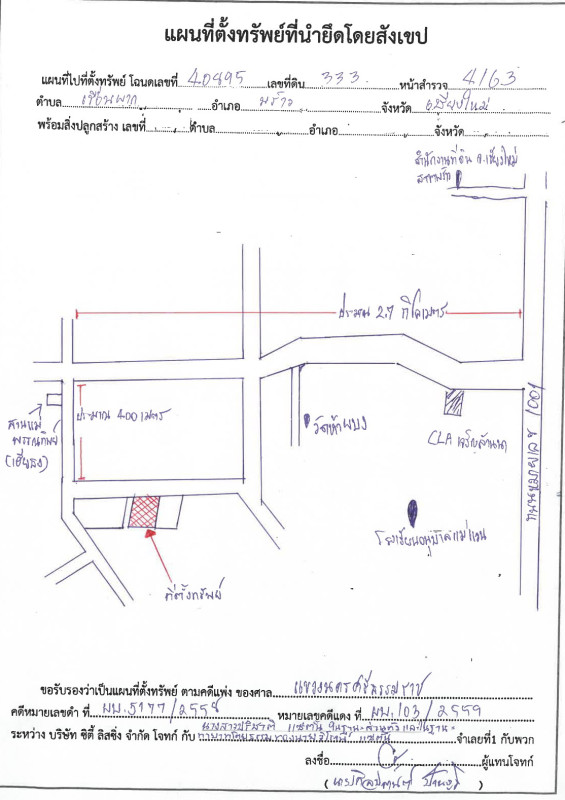 แผนที่ตั้งทรัพย์ที่นำยึดโดยสังเขป
แผนที่ไปที่ตั้งทรัพย์ โฉนดเลขที่ 40895 เลขที่ดิน 333 หน้าสำรวจ 4163
ตำบล เขื่อนผาก อำเภอ พร้าว จังหวัด เชียงใหม่
พร้อมสิ่งปลูกสร้าง เลขที่ - ตำบล อำเภอ จังหวัด
สำนักงานที่ดิน จ.เชียงใหม่
สาขาพร้าว
ประมาณ 2.7 กิโลเมตร
ถนนหมายเลข 1001
ประมาณ 400 เมตร
(เฮียธง)
วัดห้วยบง
CLA เจริญล้านนา
โรงเรียนอนุบาลแม่แวน
ที่ตั้งทรัพย์
ขอรับรองว่าเป็นแผนที่ตั้งทรัพย์ ตามคดีแพ่ง ของศาล แขวงนครศรีธรรมราช
คดีหมายเลขดำ ที่ ผบ.5177/2558 หมายเลขคดีแดง ที่ ผบ.103/2559
ระหว่าง บริษัท ซิตี้ ลิสซิ่ง จำกัด โจทก์ กับ ในฐานะส่วนตัวและในฐานะ จำเลยที่1 กับพวก
ลงชื่อ ผู้แทนโจทก์